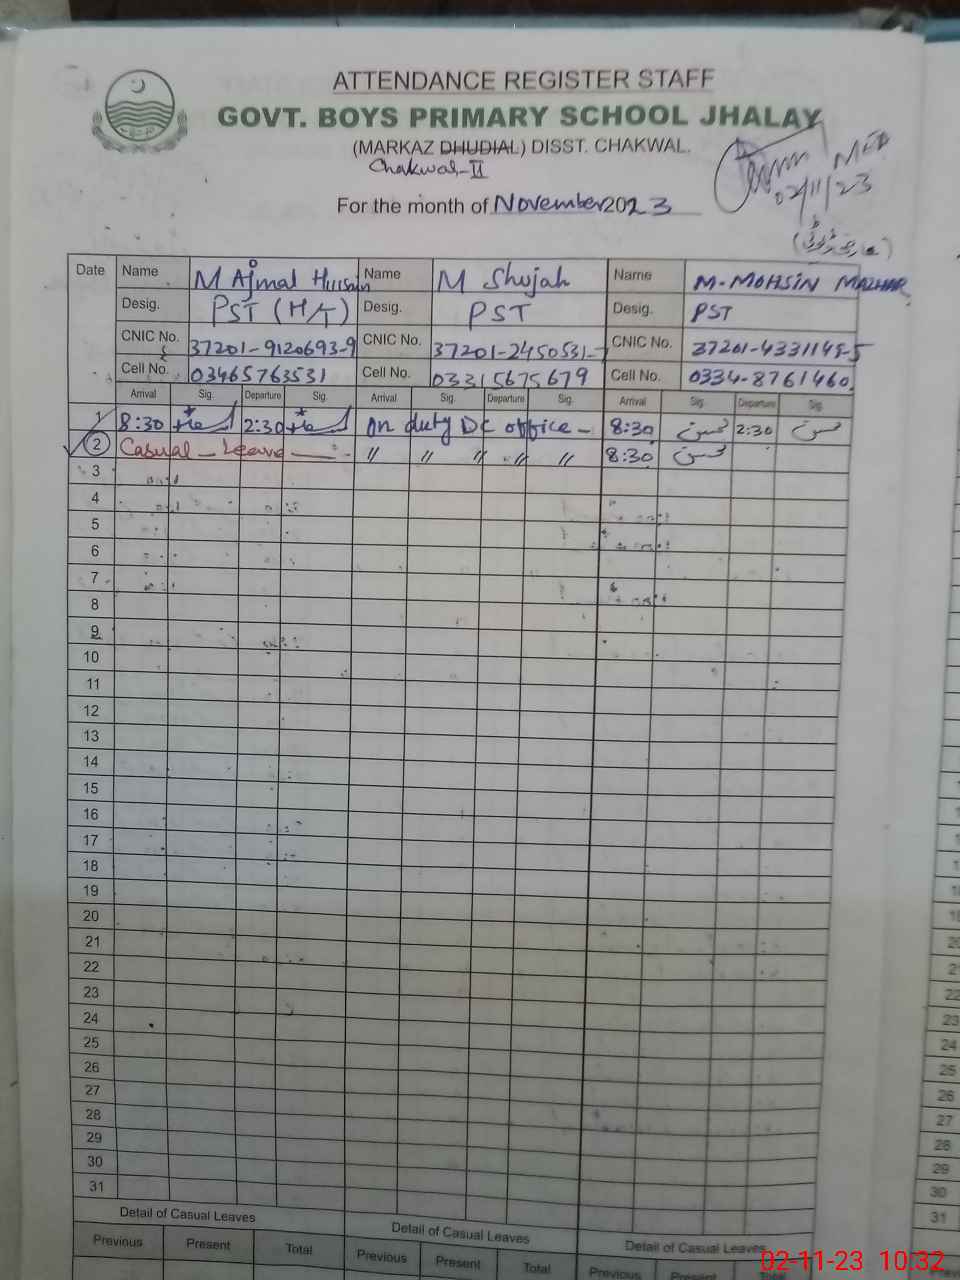 ATTENDANCE REGISTER STAFF
GOVT. BOYS PRIMARY SCHOOL JHALAY
(MARKAZ DHUDIAL) DISST. CHAKWAL.
Chakwal-II
02/11/23
For the month of November 2023
Date Name M Ajmal Hussain Name M Shujah Name M. MOHSIN MAZHAR
Desig. PST (H/T) Desig. PST Desig. PST
CNIC No. 37201-9120693-9 CNIC No. 37201-2450531-7 CNIC No. 37201-4331145-5
Cell No. 03465763531 Cell No. 03315675679 Cell No. 0334-8761460
Arrival Sig. Departure Sig. Arrival Sig. Departure Sig. Arrival Sig. Departure Sig.
1 8:30 2:30 On duty DC office - 8:30 محسن 2:30 محسن
2 Casual - Leave - " " " " " 8:30 محسن
3
4
5
6
7
8
9
10
11
12
13
14
15
16
17
18
19
20
21
22
23
24
25
26
27
28
29
30
31
Detail of Casual Leaves Detail of Casual Leaves Detail of Casual Leaves
Previous Present Total Previous Present Total Previous Present Total
02-11-23 10:32